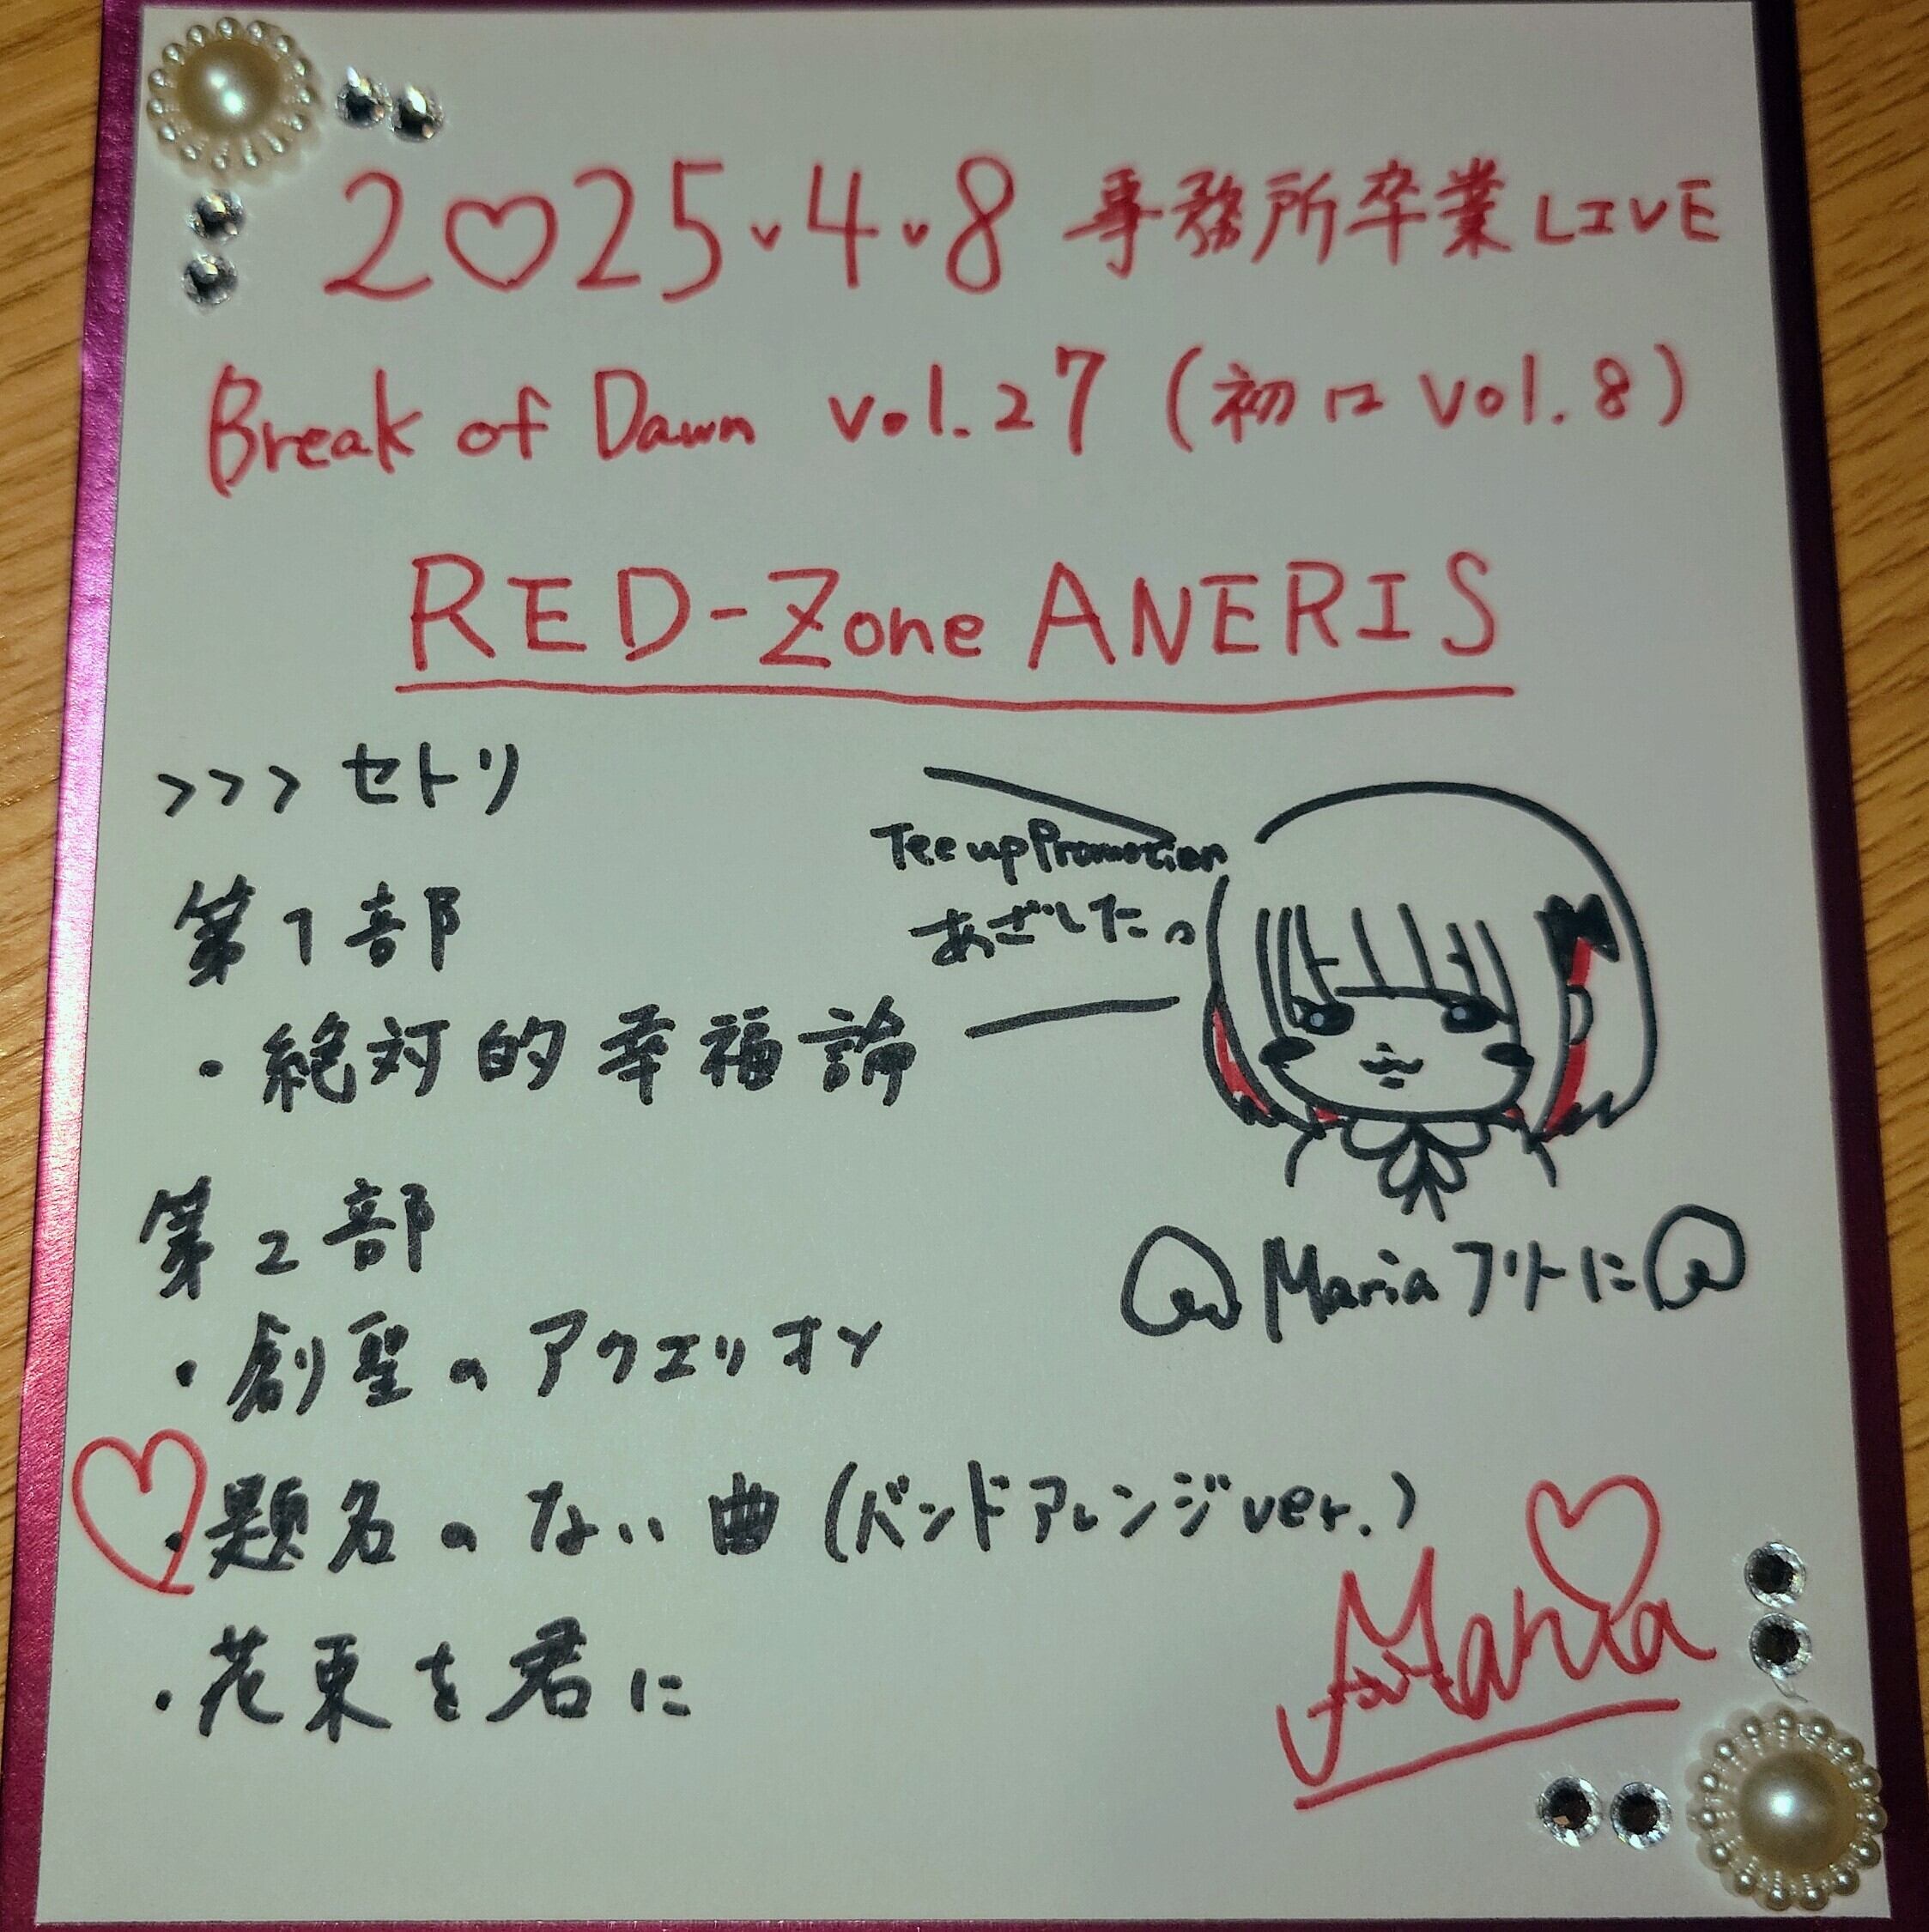 2♡25.4.8 事務所卒業LIVE
Break of Dawn vol.27 (初は vol.8)
RED-Zone ANERIS
>>> セトリ
Tee up Promotion
あざしたっ
第1部
・絶対的幸福論
第2部
・創聖のアクエリオン
Mariaフリーに
・題名のない曲(バンドアレンジver.)
・花束を君に
Maria